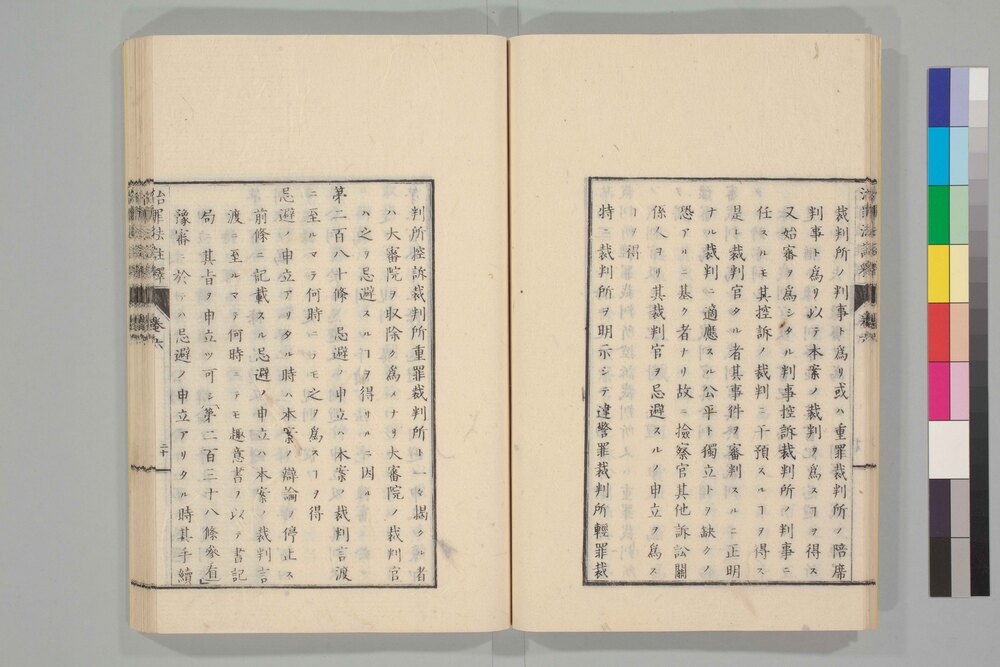 裁判所ノ判事ト爲リ或ハ重罪裁判所ノ陪席
判事ト爲リ以テ本案ノ裁判ヲ爲スヿヲ得ス
又始審ヲ爲シタル判事控訴裁判所ノ判事ニ
任スルモ其控訴ノ裁判ニ干預スルヿヲ得ス
是レ裁判官タル者其事件ヲ審判スルニ正明
ナル裁判ニ適應スル公平ト獨立トヲ缺クノ
恐アルニ基ク者ナリ故ニ撿察官其他訴訟關
係人ヨリ其裁判官ヲ忌避スルノ申立ヲ爲ス
ヿヲ得
特ニ裁判所ヲ明示シテ違警罪裁判所輕罪裁
判所控訴裁判所重罪裁判所ト一々揭クル者
ハ大審院ヲ取除ク爲メナリ大審院ノ裁判官
ハ之ヲ忌避スルヿヲ得サルニ因ル
第二百八十條 忌避ノ申立ハ本案ノ裁判言渡
ニ至ルマテ何時ニテモ之ヲ爲スヿヲ得
忌避ノ申立アリタル時ハ本案ノ辯論ヲ停止ス
前條ニ記載スル忌避ノ申立ハ本案ノ裁判言
渡ニ至ルマテ何時ニテモ趣意書ヲ以テ書記
局ニ其旨ヲ申立ツ可シ「第二百三十八條參看」
豫審ニ於テハ忌避ノ申立アリタル時其手續
治罪法註釋 卷六 二十